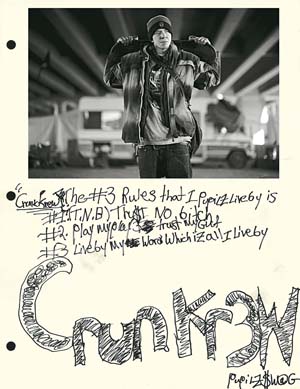 CrunkKrew The #3 Rules that I PupiLZ Live by is
#1 (T.N.B) Trust NO Bitch
#2. Play my Play trust my Gut
#3 Live by my Word Which iz all I Live by
Crunkr3W
PupiLZ $WAG